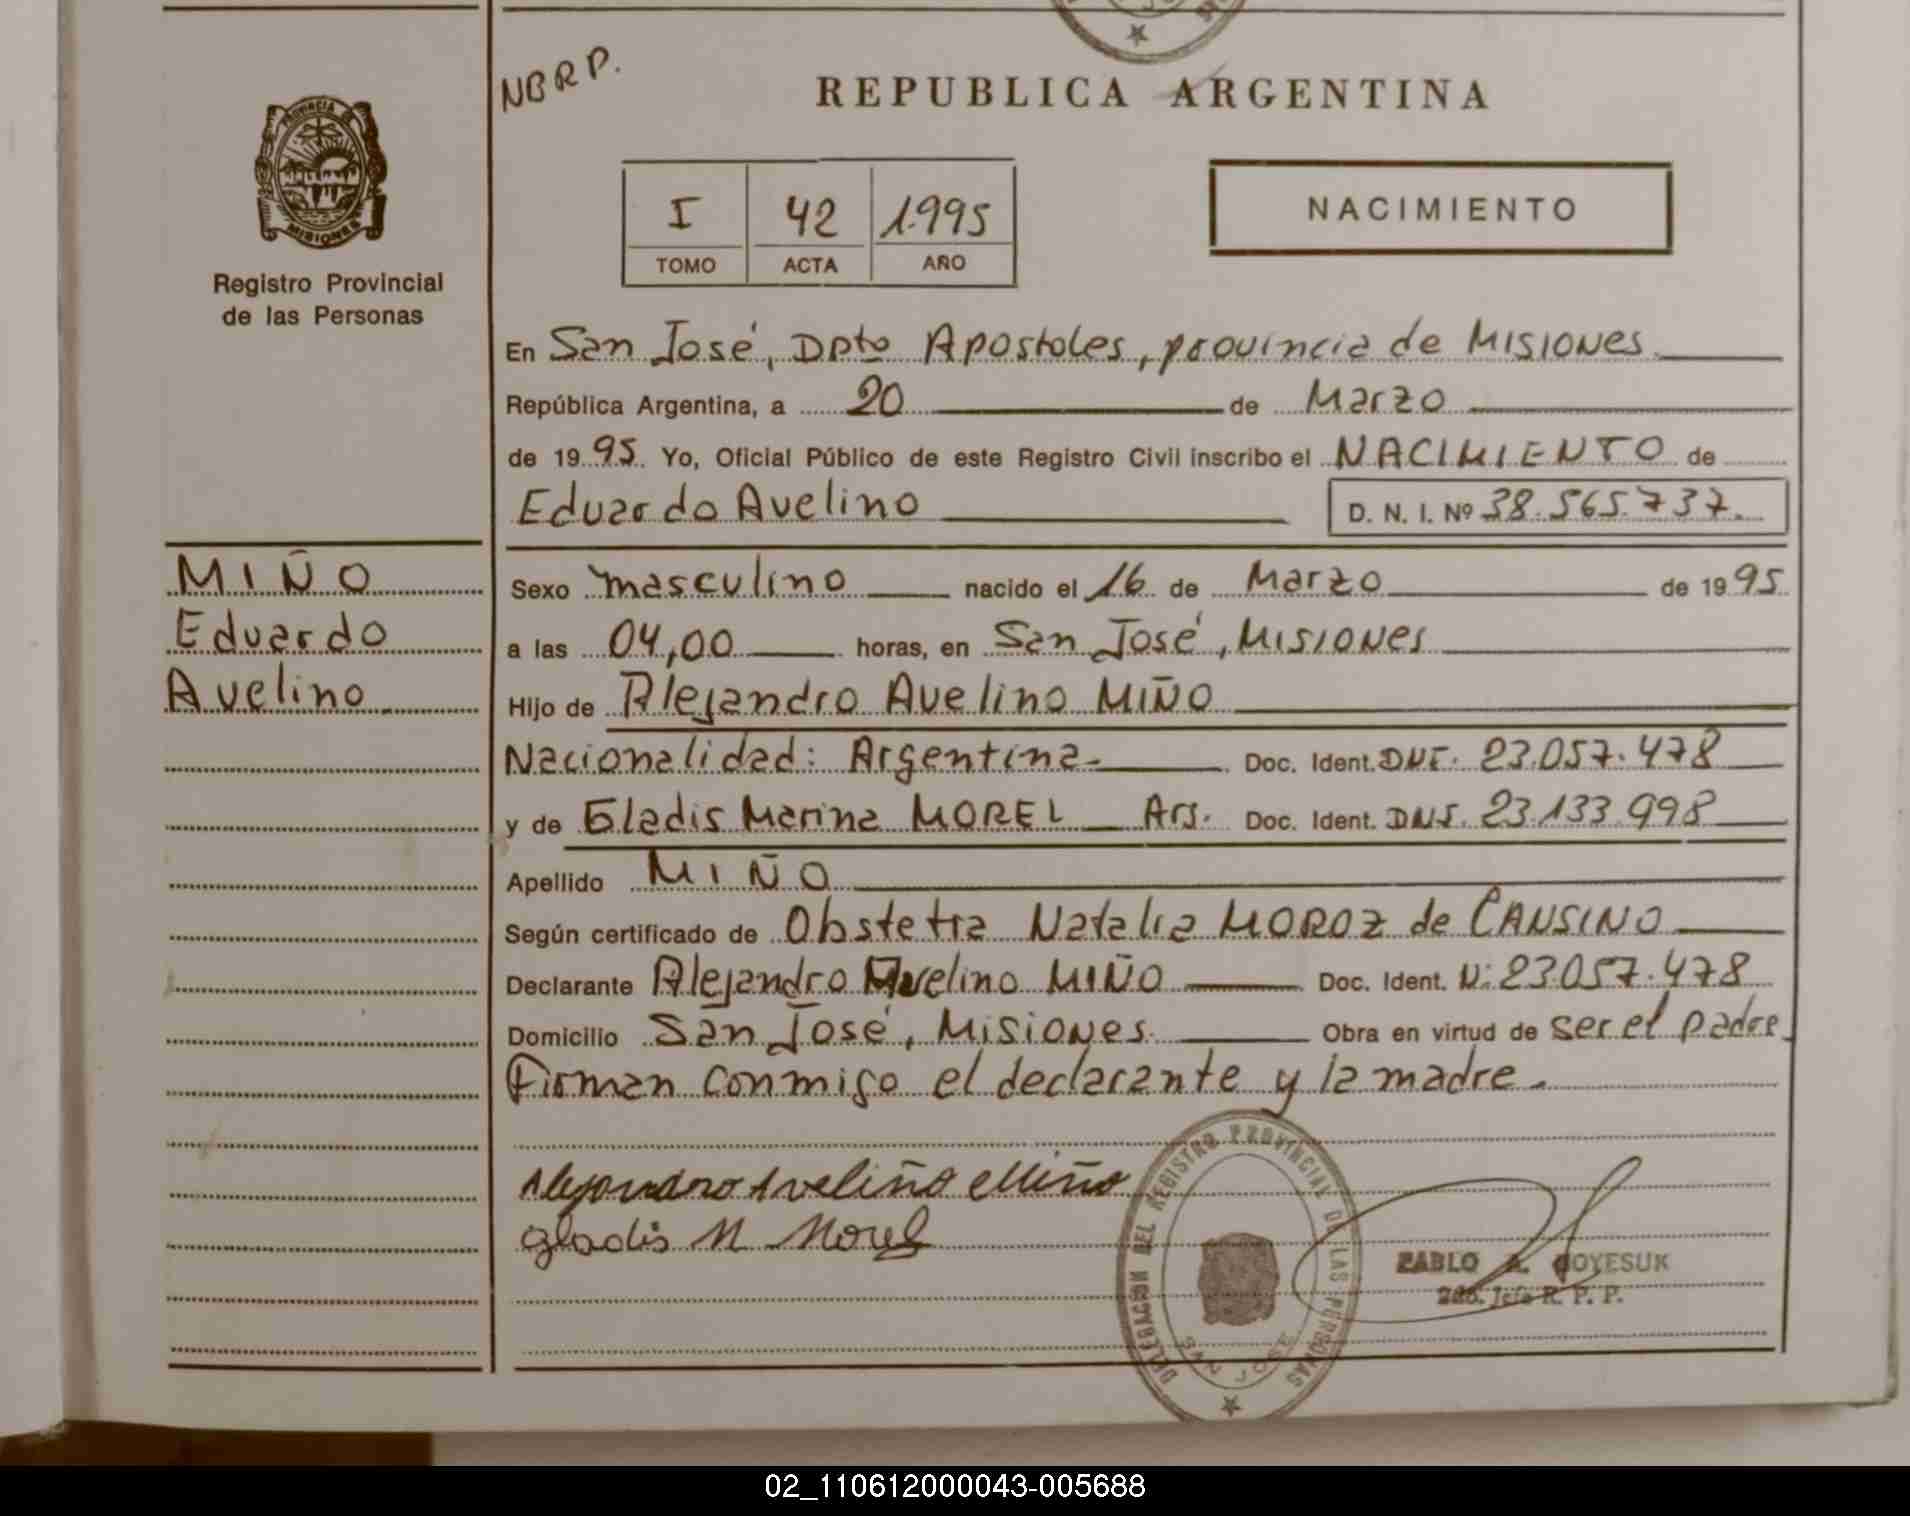 NBRP.
REPUBLICA ARGENTINA
PROVINCIA DE
MISIONES
Registro Provincial
de las Personas
I 42 1.995
TOMO ACTA AÑO
NACIMIENTO
En San José, Dpto Apostoles, provincia de Misiones.
República Argentina, a 20 de Marzo
de 1995. Yo, Oficial Público de este Registro Civil inscribo el NACIMIENTO de
Eduardo Avelino D. N. I. Nº 38.565.737.
MIÑO
Eduardo
Avelino
Sexo masculino nacido el 16 de Marzo de 1995
a las 04,00 horas, en San José, Misiones
Hijo de Alejandro Avelino MIÑO
Nacionalidad: Argentina- Doc. Ident. DNI. 23.057.478
y de Gladis Marina MOREL Arg. Doc. Ident. DNI. 23.133.998
Apellido MIÑO
Según certificado de Obstetra Natalia MOROZ de CANSINO
Declarante Alejandro Avelino MIÑO Doc. Ident. N: 23.057.478
Domicilio San José, Misiones. Obra en virtud de ser el padre.
Firman conmigo el declarante y la madre.
Alejandro Aveliño Miño
gladis M Morel
DELEGACION DEL REGISTRO PROVINCIAL DE LAS PERSONAS
SAN JOSE
PABLO A. 
R. P. P.
02_110612000043-005688